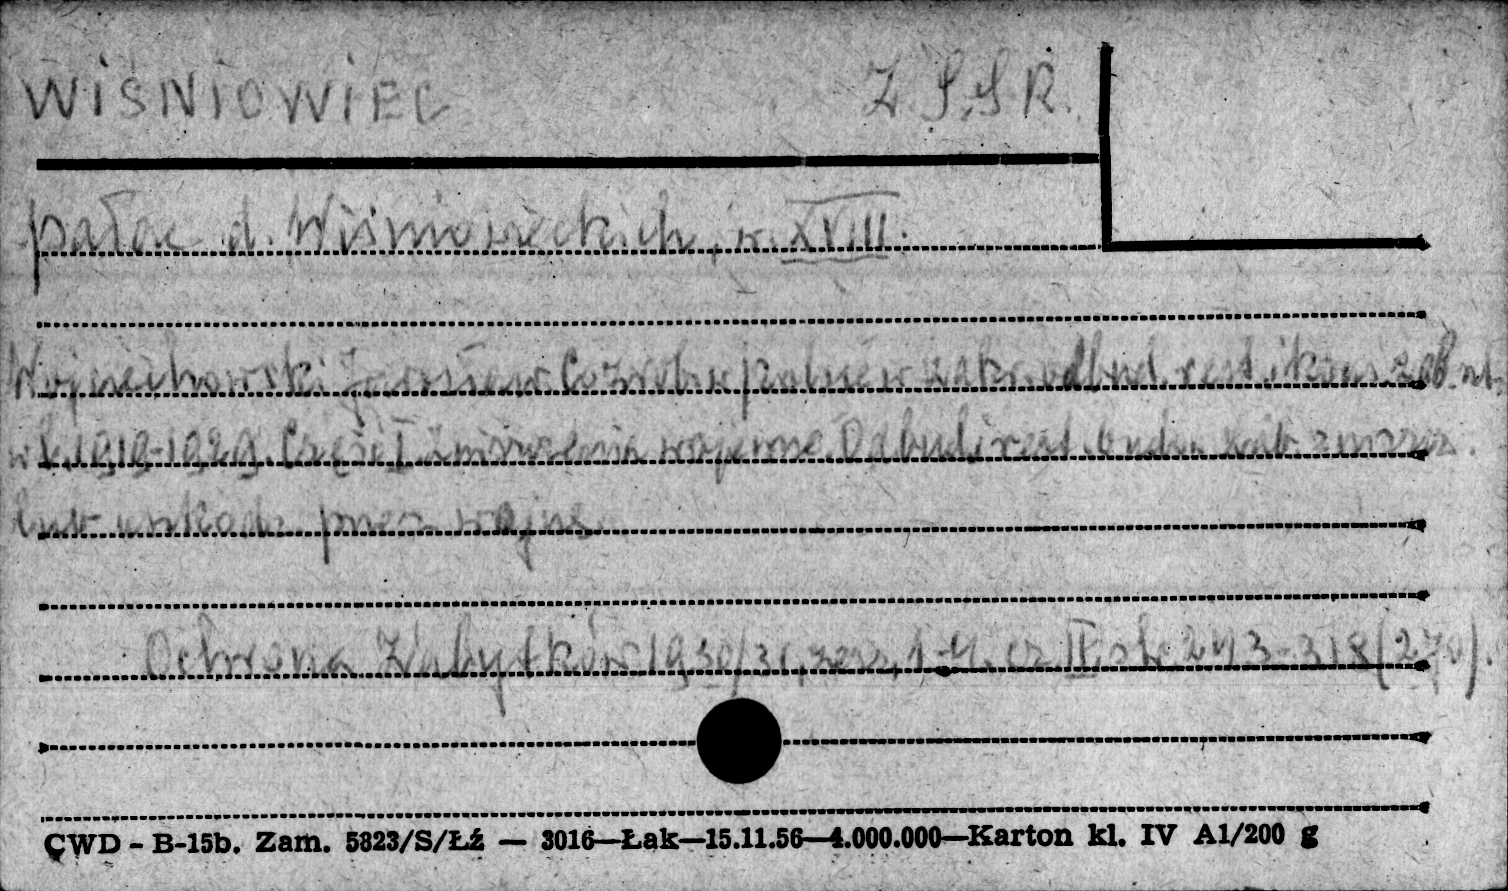 WIŚNIOWIEC Z.S.S.R.
pałac d. Wiśniowieckich, w. XVIII.
Wojciechowski Jarosław Co zrobiła Polska w zakr. odbud. rest. i kons. zab. szt.
w l. 1919-1929. Część I zniszczenia wojenne. Odbud. i rest. bud. zab. zniszcz.
lub uszkodz. przez wojnę
Ochrona Zabytków 1930/31, zesz. 1-4. cz. II str. 243-318 (270).
CWD - B-15b. Zam. 5823/S/Łź — 3016—Łak—15.11.56—4.000.000—Karton kl. IV A1/200 g